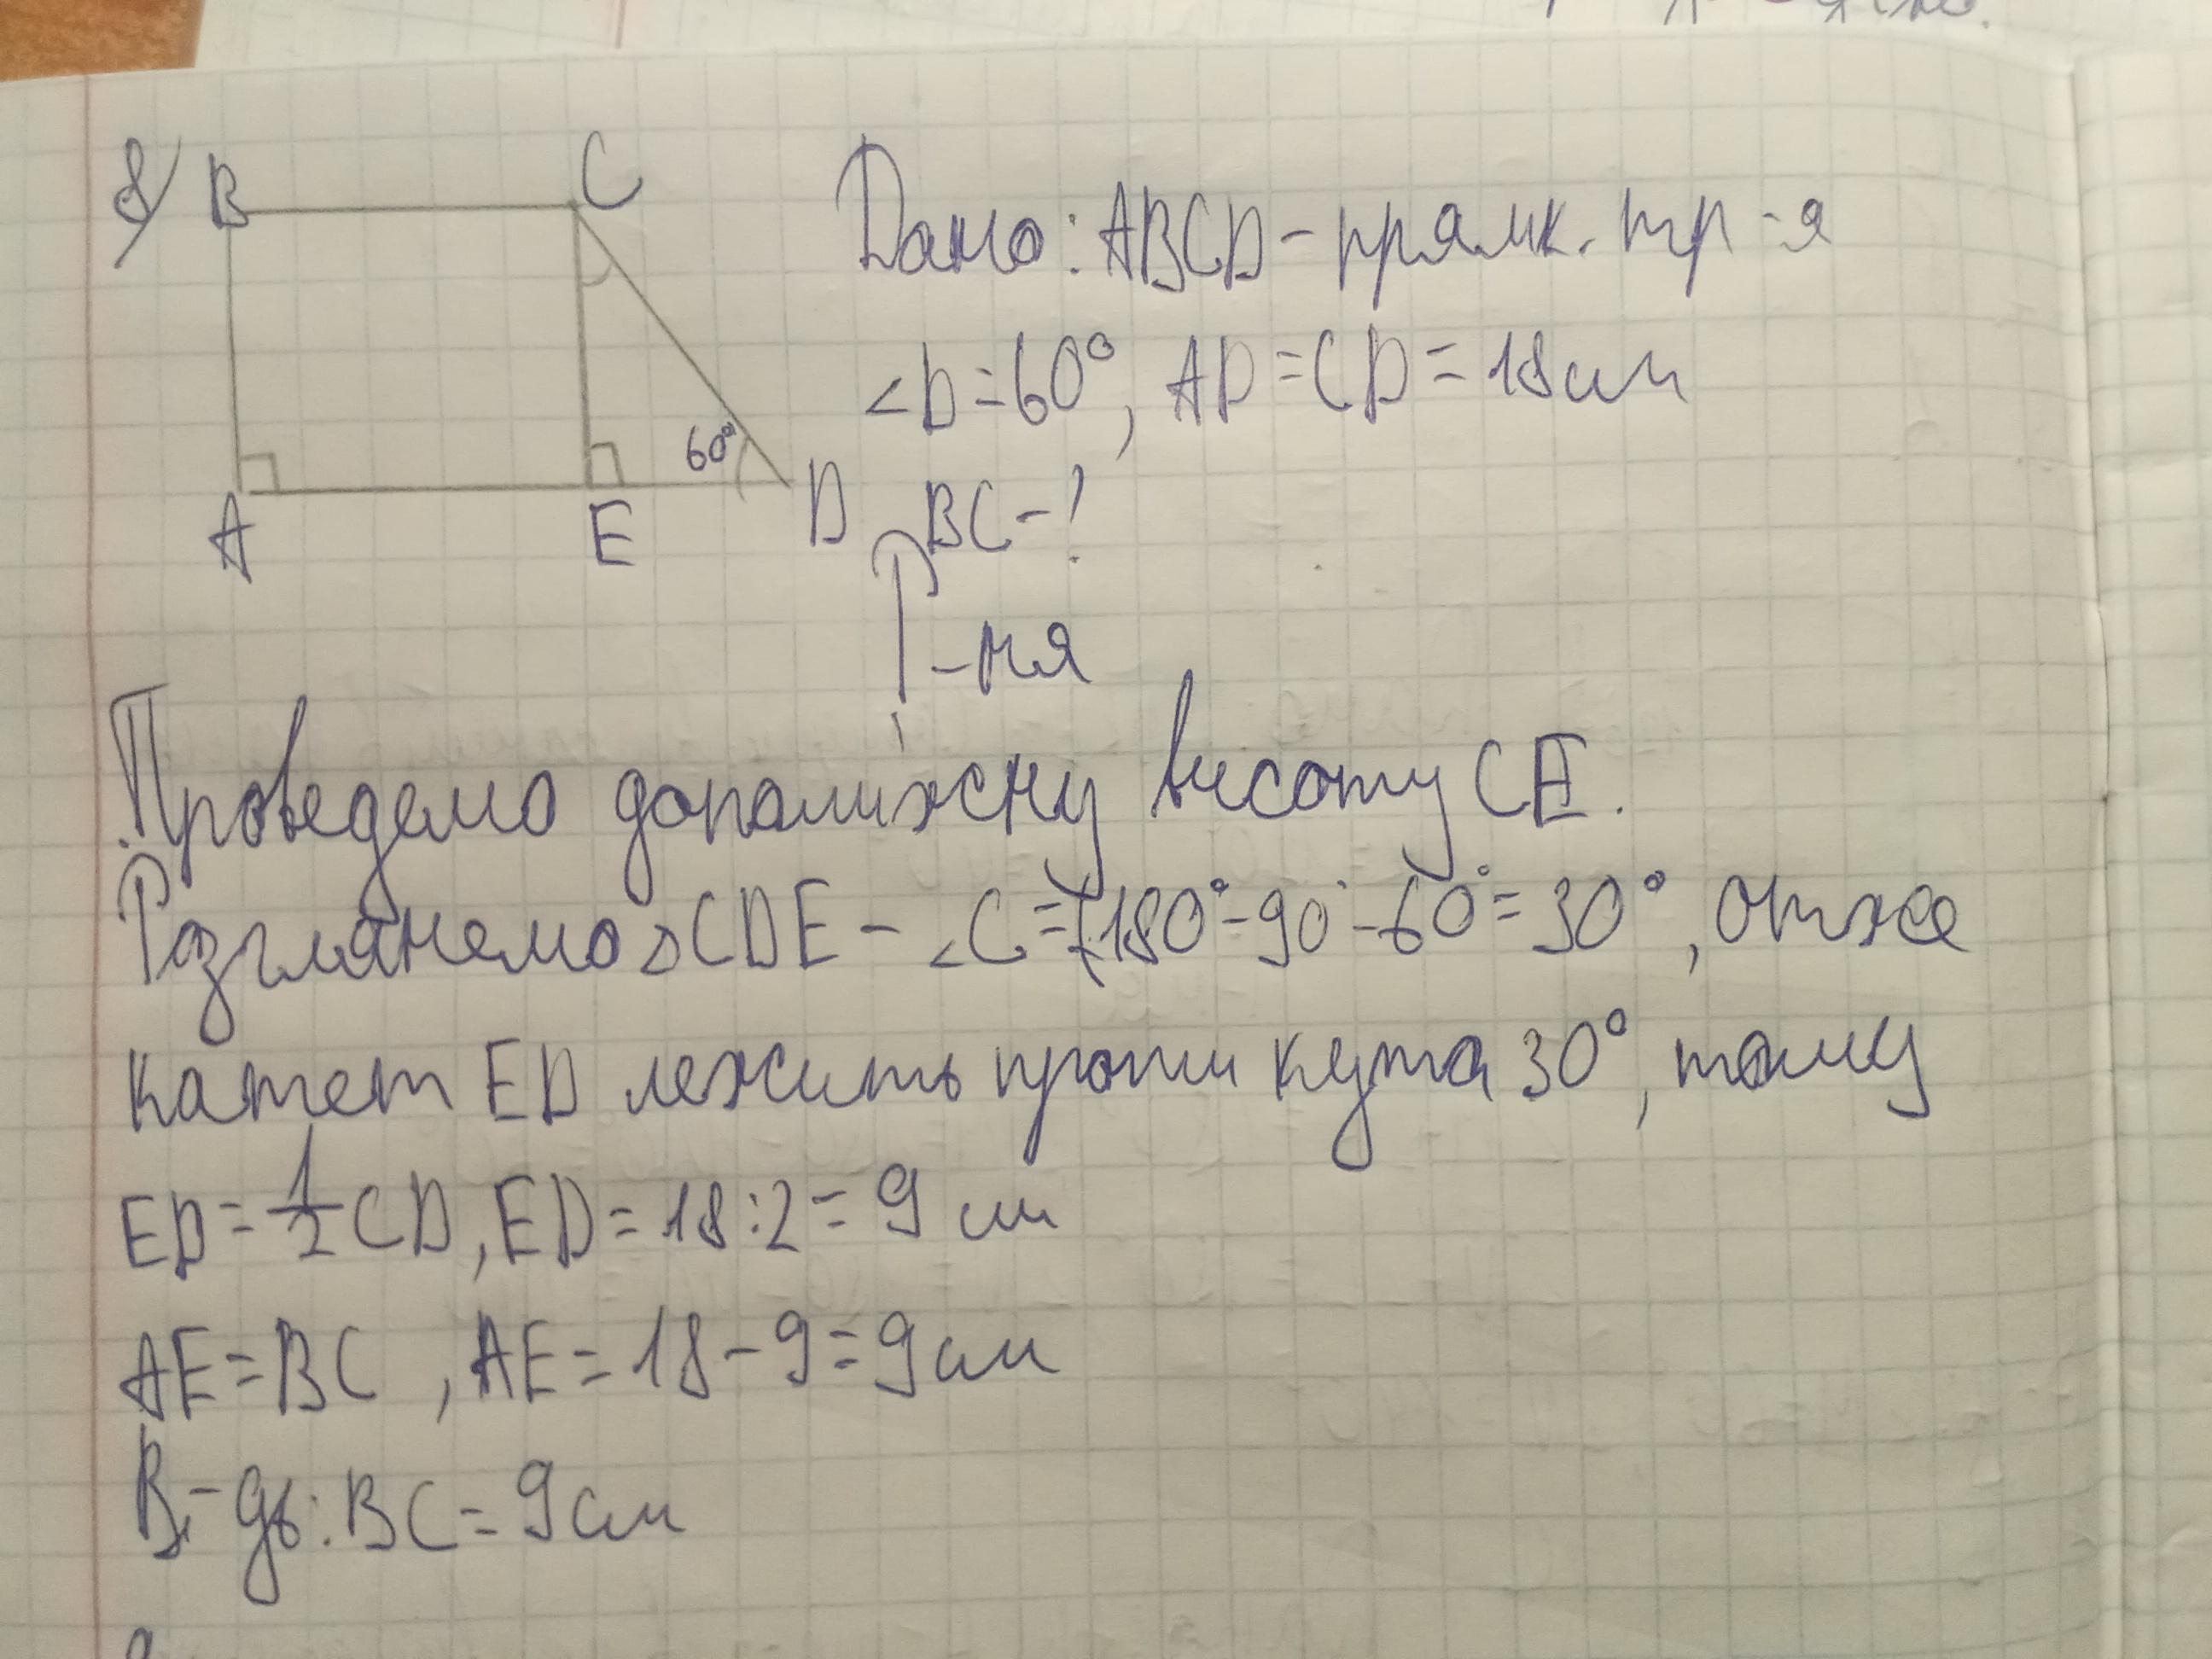 8/
B
C
A
E
D
60°
Дано: ABCD - прямк. тр-я
∠D=60°, AD=CD=18см
BC-?
Р-ня
Проведемо допоміжну висоту CE.
Розглянемо △CDE - ∠C=180°-90°-60°=30°, отже
катет ED лежить проти кута 30°, тому
ED=1/2CD, ED=18:2=9 см
AE=BC, AE=18-9=9см
В-дь: BC=9см